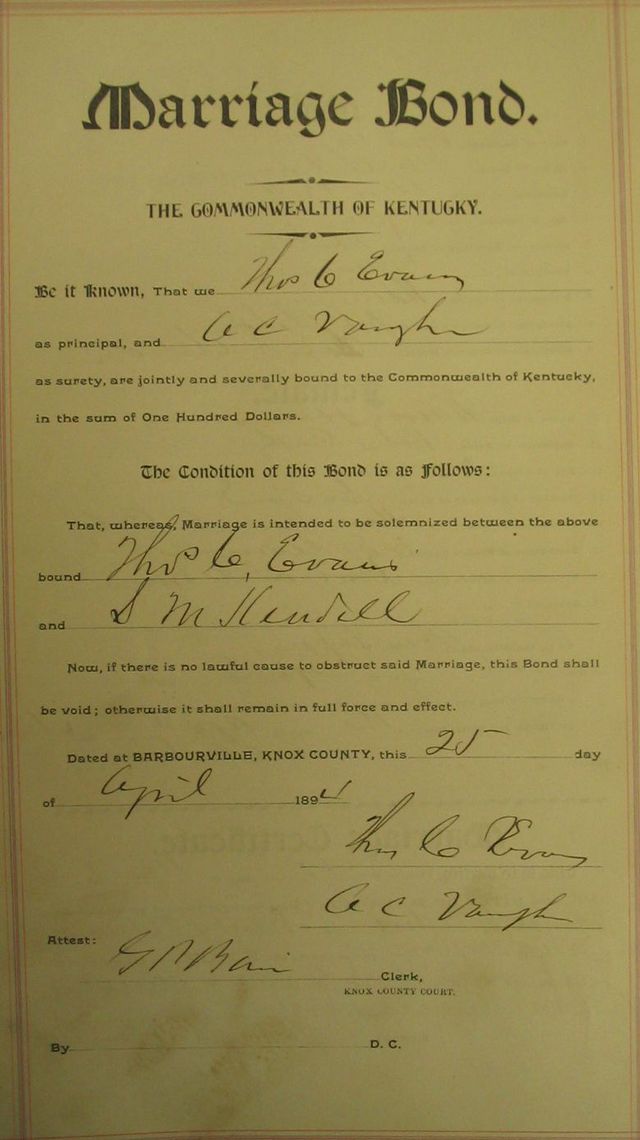 Marriage Bond.
THE COMMONWEALTH OF KENTUCKY.
Be it Known, That we Thos C Evans
as principal, and A C Vaughn
as surety, are jointly and severally bound to the Commonwealth of Kentucky,
in the sum of One Hundred Dollars.
The Condition of this Bond is as Follows:
That, whereas, Marriage is intended to be solemnized between the above
bound Thos C, Evans
and S M Kendall
Now, if there is no lawful cause to obstruct said Marriage, this Bond shall
be void; otherwise it shall remain in full force and effect.
Dated at BARBOURVILLE, KNOX COUNTY, this 25 day
of April 1894
Thos C Evans
A C Vaughn
Attest:
Clerk,
KNOX COUNTY COURT.
By D. C.